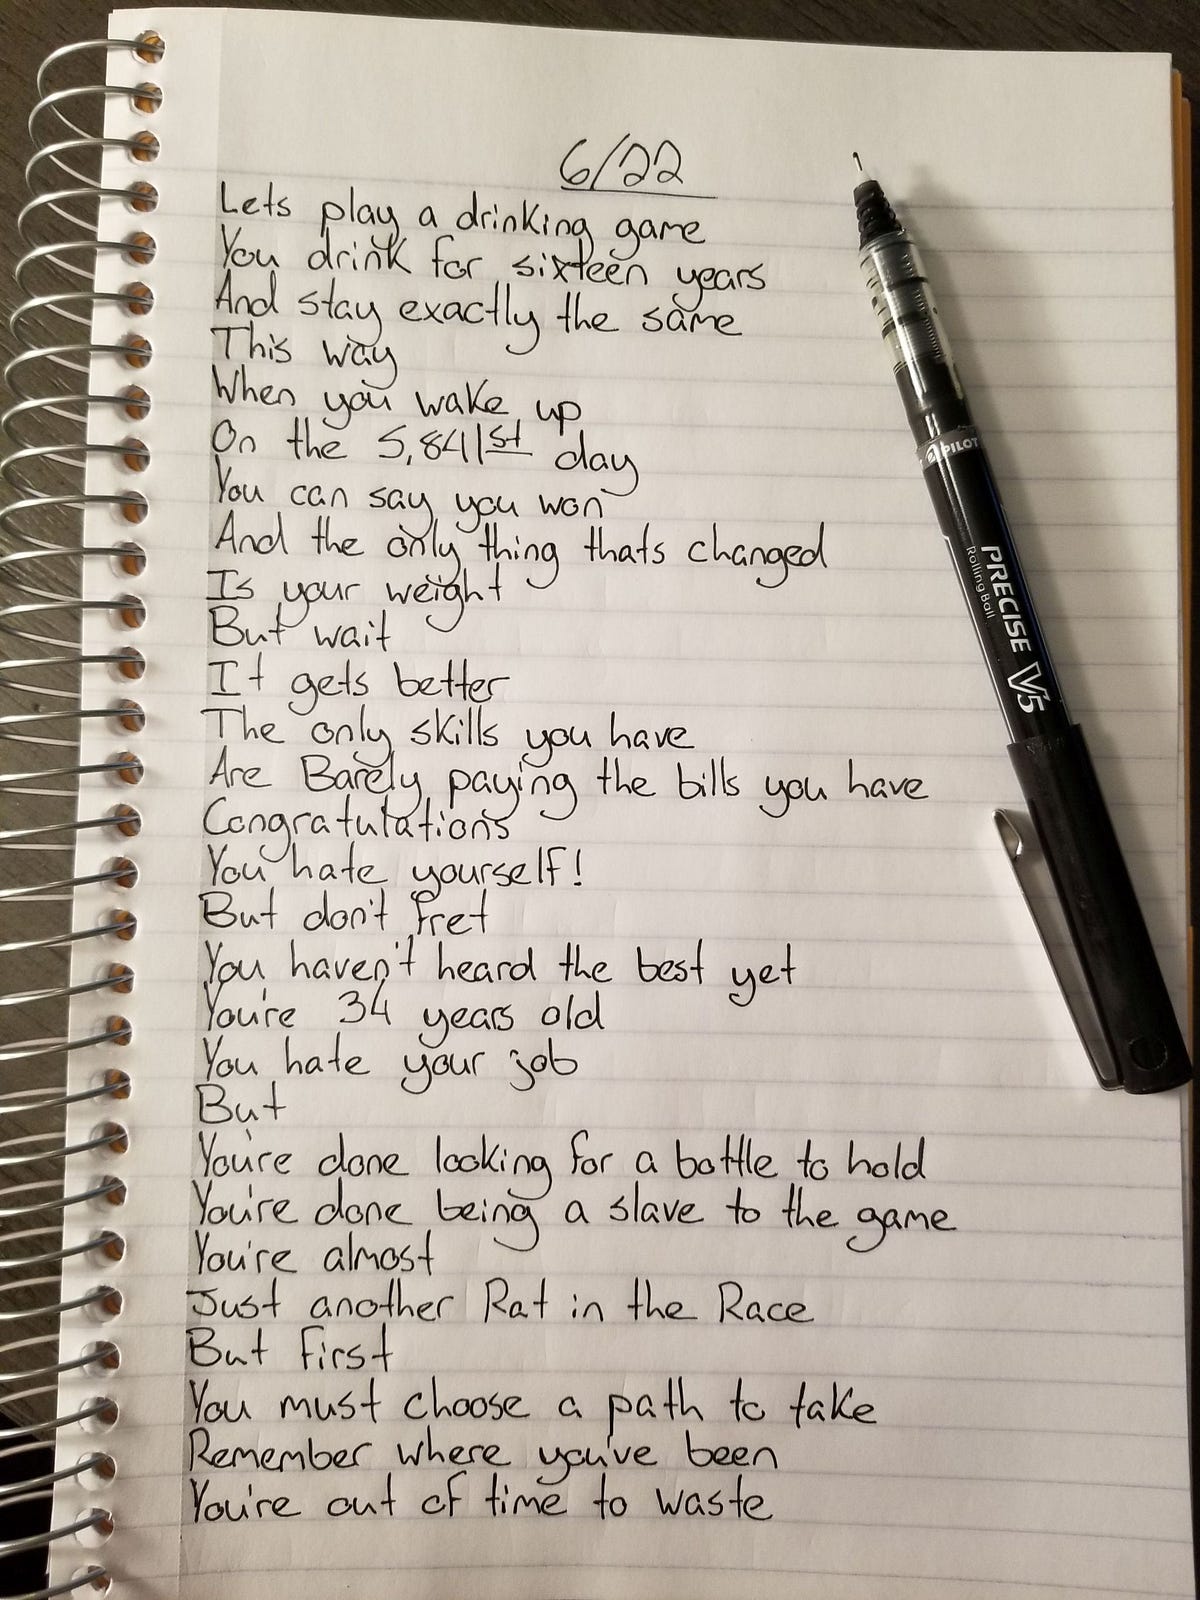 6/22
Lets play a drinking game
You drink for sixteen years
And stay exactly the same
This way
When you wake up
On the 5,841st day
You can say you won
And the only thing thats changed
Is your weight
But wait
It gets better
The only skills you have
Are Barely paying the bills you have
Congratulations
You hate yourself!
But don't fret
You haven't heard the best yet
You're 34 years old
You hate your job
But
You're done looking for a bottle to hold
You're done being a slave to the game
You're almost
Just another Rat in the Race
But first
You must choose a path to take
Remember where you've been
You're out of time to waste
PILOT
PRECISE V5
Rolling Ball